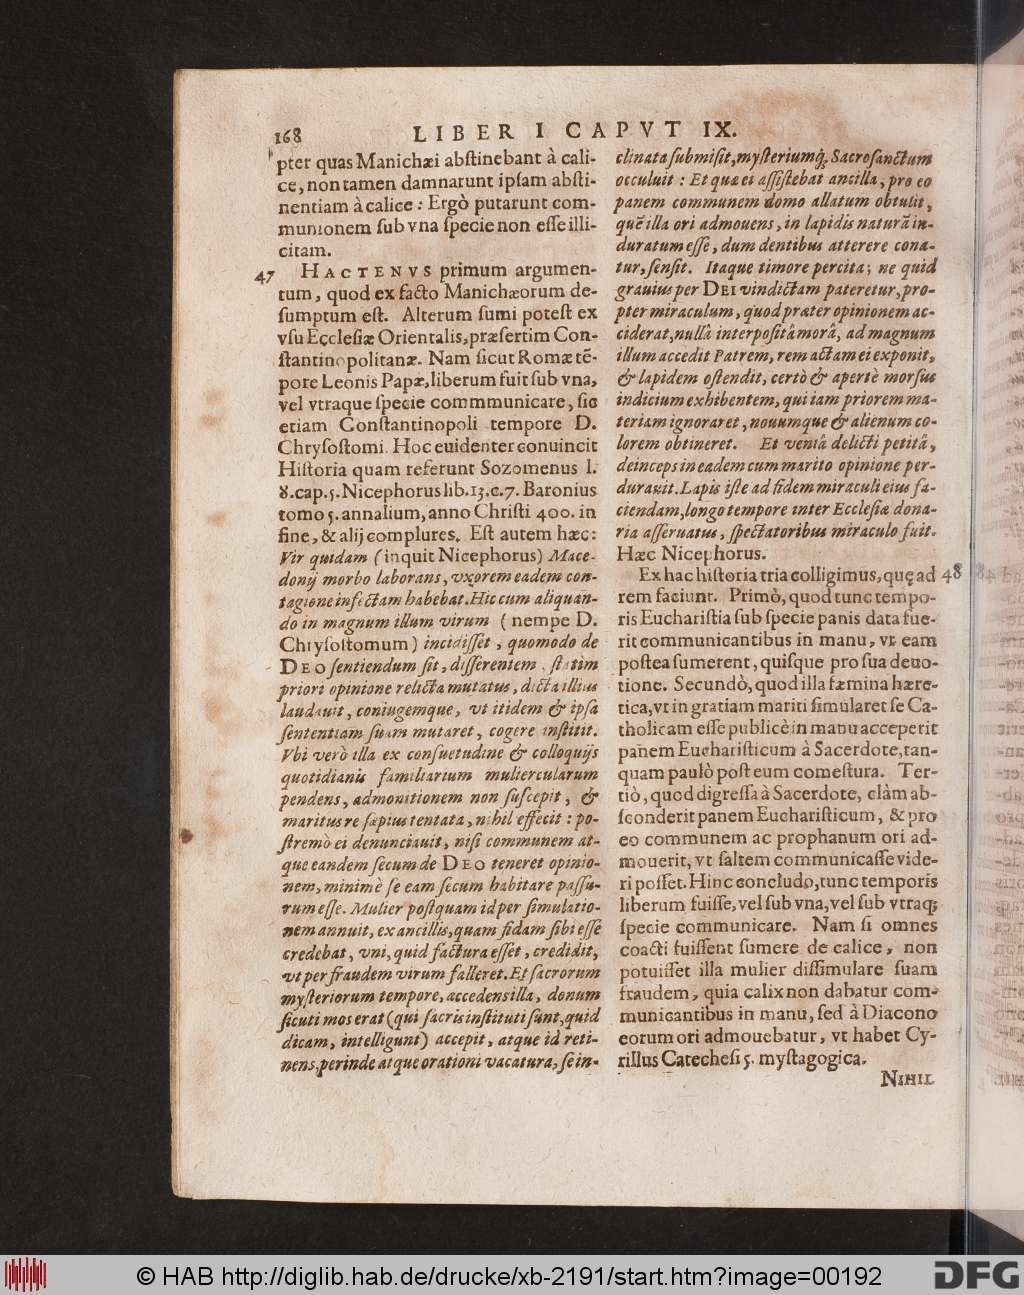 168
LIBER I CAPVT IX.
pter quas Manichæi abſtinebant à cali-
ce, non tamen damnarunt ipſam abſti-
nentiam à calice : Ergò putarunt com-
munionem ſub vna ſpecie non eſſe illi-
citam.
47 HACTENVS primum argumen-
tum, quod ex facto Manichæorum de-
ſumptum eſt. Alterum ſumi poteſt ex
vſu Eccleſiæ Orientalis, præſertim Con-
ſtantinopolitanæ. Nam ſicut Romæ tẽ-
pore Leonis Papæ, liberum fuit ſub vna,
vel vtraque ſpecie commmunicare, ſic
etiam Conſtantinopoli tempore D.
Chryſoſtomi. Hoc euidenter conuincit
Hiſtoria quam referunt Sozomenus l.
8. cap. 5. Nicephorus lib. 13. c. 7. Baronius
tomo 5. annalium, anno Chriſti 400. in
fine, & alij complures. Eſt autem hæc:
Vir quidam (inquit Nicephorus) Mace-
donij morbo laborans, vxorem eadem con-
tagione infectam habebat. Hic cum aliquan-
do in magnum illum virum (nempe D.
Chryſoſtomum) incidiſſet, quomodo de
DEO ſentiendum ſit, diſſerentem, ſtatim
priori opinione relicta mutatus, dicta illius
laudauit, coniugemque, vt itidem & ipſa
ſententiam ſuam mutaret, cogere inſtitit.
Vbi verò illa ex conſuetudine & colloquijs
quotidianis familiarium muliercularum
pendens, admonitionem non ſuſcepit, &
maritus re ſæpius tentata, nihil effecit : po-
ſtremò ei denunciauit, niſi communem at-
que eandem ſecum de DEO teneret opinio-
nem, minimè ſe eam ſecum habitare paſſu-
rum eſſe. Mulier poſtquam id per ſimulatio-
nem annuit, ex ancillis, quam fidam ſibi eſſe
credebat, vni, quid factura eſſet, credidit,
vt per fraudem virum falleret. Et ſacrorum
myſteriorum tempore, accedens illa, donum
ſicuti mos erat (qui ſacris inſtituti ſunt, quid
dicam, intelligunt) accepit, atque id reti-
nens, perinde atque orationi vacatura, ſe in-
clinata ſubmiſit, myſteriumq́; Sacroſanctum
occuluit : Et quæ ei aſſiſtebat ancilla, pro eo
panem communem domo allatum obtulit,
quẽ illa ori admouens, in lapidis naturã in-
duratum eſſe, dum dentibus atterere cona-
tur, ſenſit. Itaque timore percita; ne quid
grauius per DEI vindictam pateretur, pro-
pter miraculum, quod præter opinionem ac-
ciderat, nullâ interpoſitâ morâ, ad magnum
illum accedit Patrem, rem actam ei exponit,
& lapidem oſtendit, certò & apertè morſus
indicium exhibentem, qui iam priorem ma-
teriam ignoraret, nouumque & alienum co-
lorem obtineret. Et veniâ delicti petitâ,
deinceps in eadem cum marito opinione per-
durauit. Lapis iſte ad fidem miraculi eius fa-
ciendam, longo tempore inter Eccleſiæ dona-
ria aſſeruatus, ſpectatoribus miraculo fuit.
Hæc Nicephorus.
Ex hac hiſtoria tria colligimus, quę ad 48
rem faciunt. Primò, quod tunc tempo-
ris Euchariſtia ſub ſpecie panis data fue-
rit communicantibus in manu, vt eam
poſtea ſumerent, quiſque pro ſua deuo-
tione. Secundò, quod illa fæmina hære-
tica, vt in gratiam mariti ſimularet ſe Ca-
tholicam eſſe publicè in manu acceperit
panem Euchariſticum à Sacerdote, tan-
quam paulò poſt eum comeſtura. Ter-
tiò, quod digreſſa à Sacerdote, clàm ab-
ſconderit panem Euchariſticum, & pro
eo communem ac prophanum ori ad-
mouerit, vt ſaltem communicaſſe vide-
ri poſſet. Hinc concludo, tunc temporis
liberum fuiſſe, vel ſub vna, vel ſub vtraq;
ſpecie communicare. Nam ſi omnes
coacti fuiſſent ſumere de calice, non
potuiſſet illa mulier diſſimulare ſuam
fraudem, quia calix non dabatur com-
municantibus in manu, ſed à Diacono
eorum ori admouebatur, vt habet Cy-
rillus Catecheſi 5. myſtagogica.
NIHIL
© HAB http://diglib.hab.de/drucke/xb-2191/start.htm?image=00192
DFG